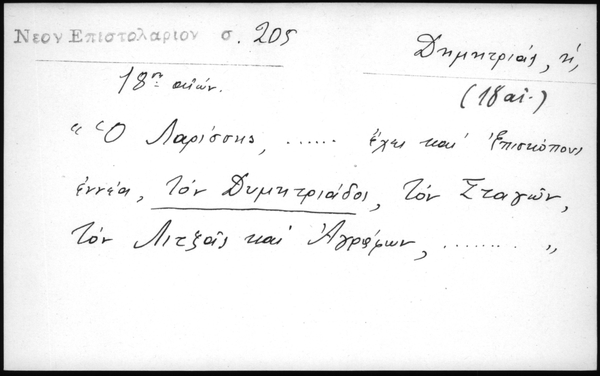 Νεον Επιστολαριον σ. 205
Δημητριάς, ἡ,
18ος αἰών.
(18 αἰ.)
"Ὁ Λαρίσσης, ...... ἔχει καὶ ἐπισκόπους
ἐννέα, τὸν Δυμητριάδος, τὸν Σταγῶν,
τὸν Λιτζᾶς καὶ Ἀγράφων, ........ "